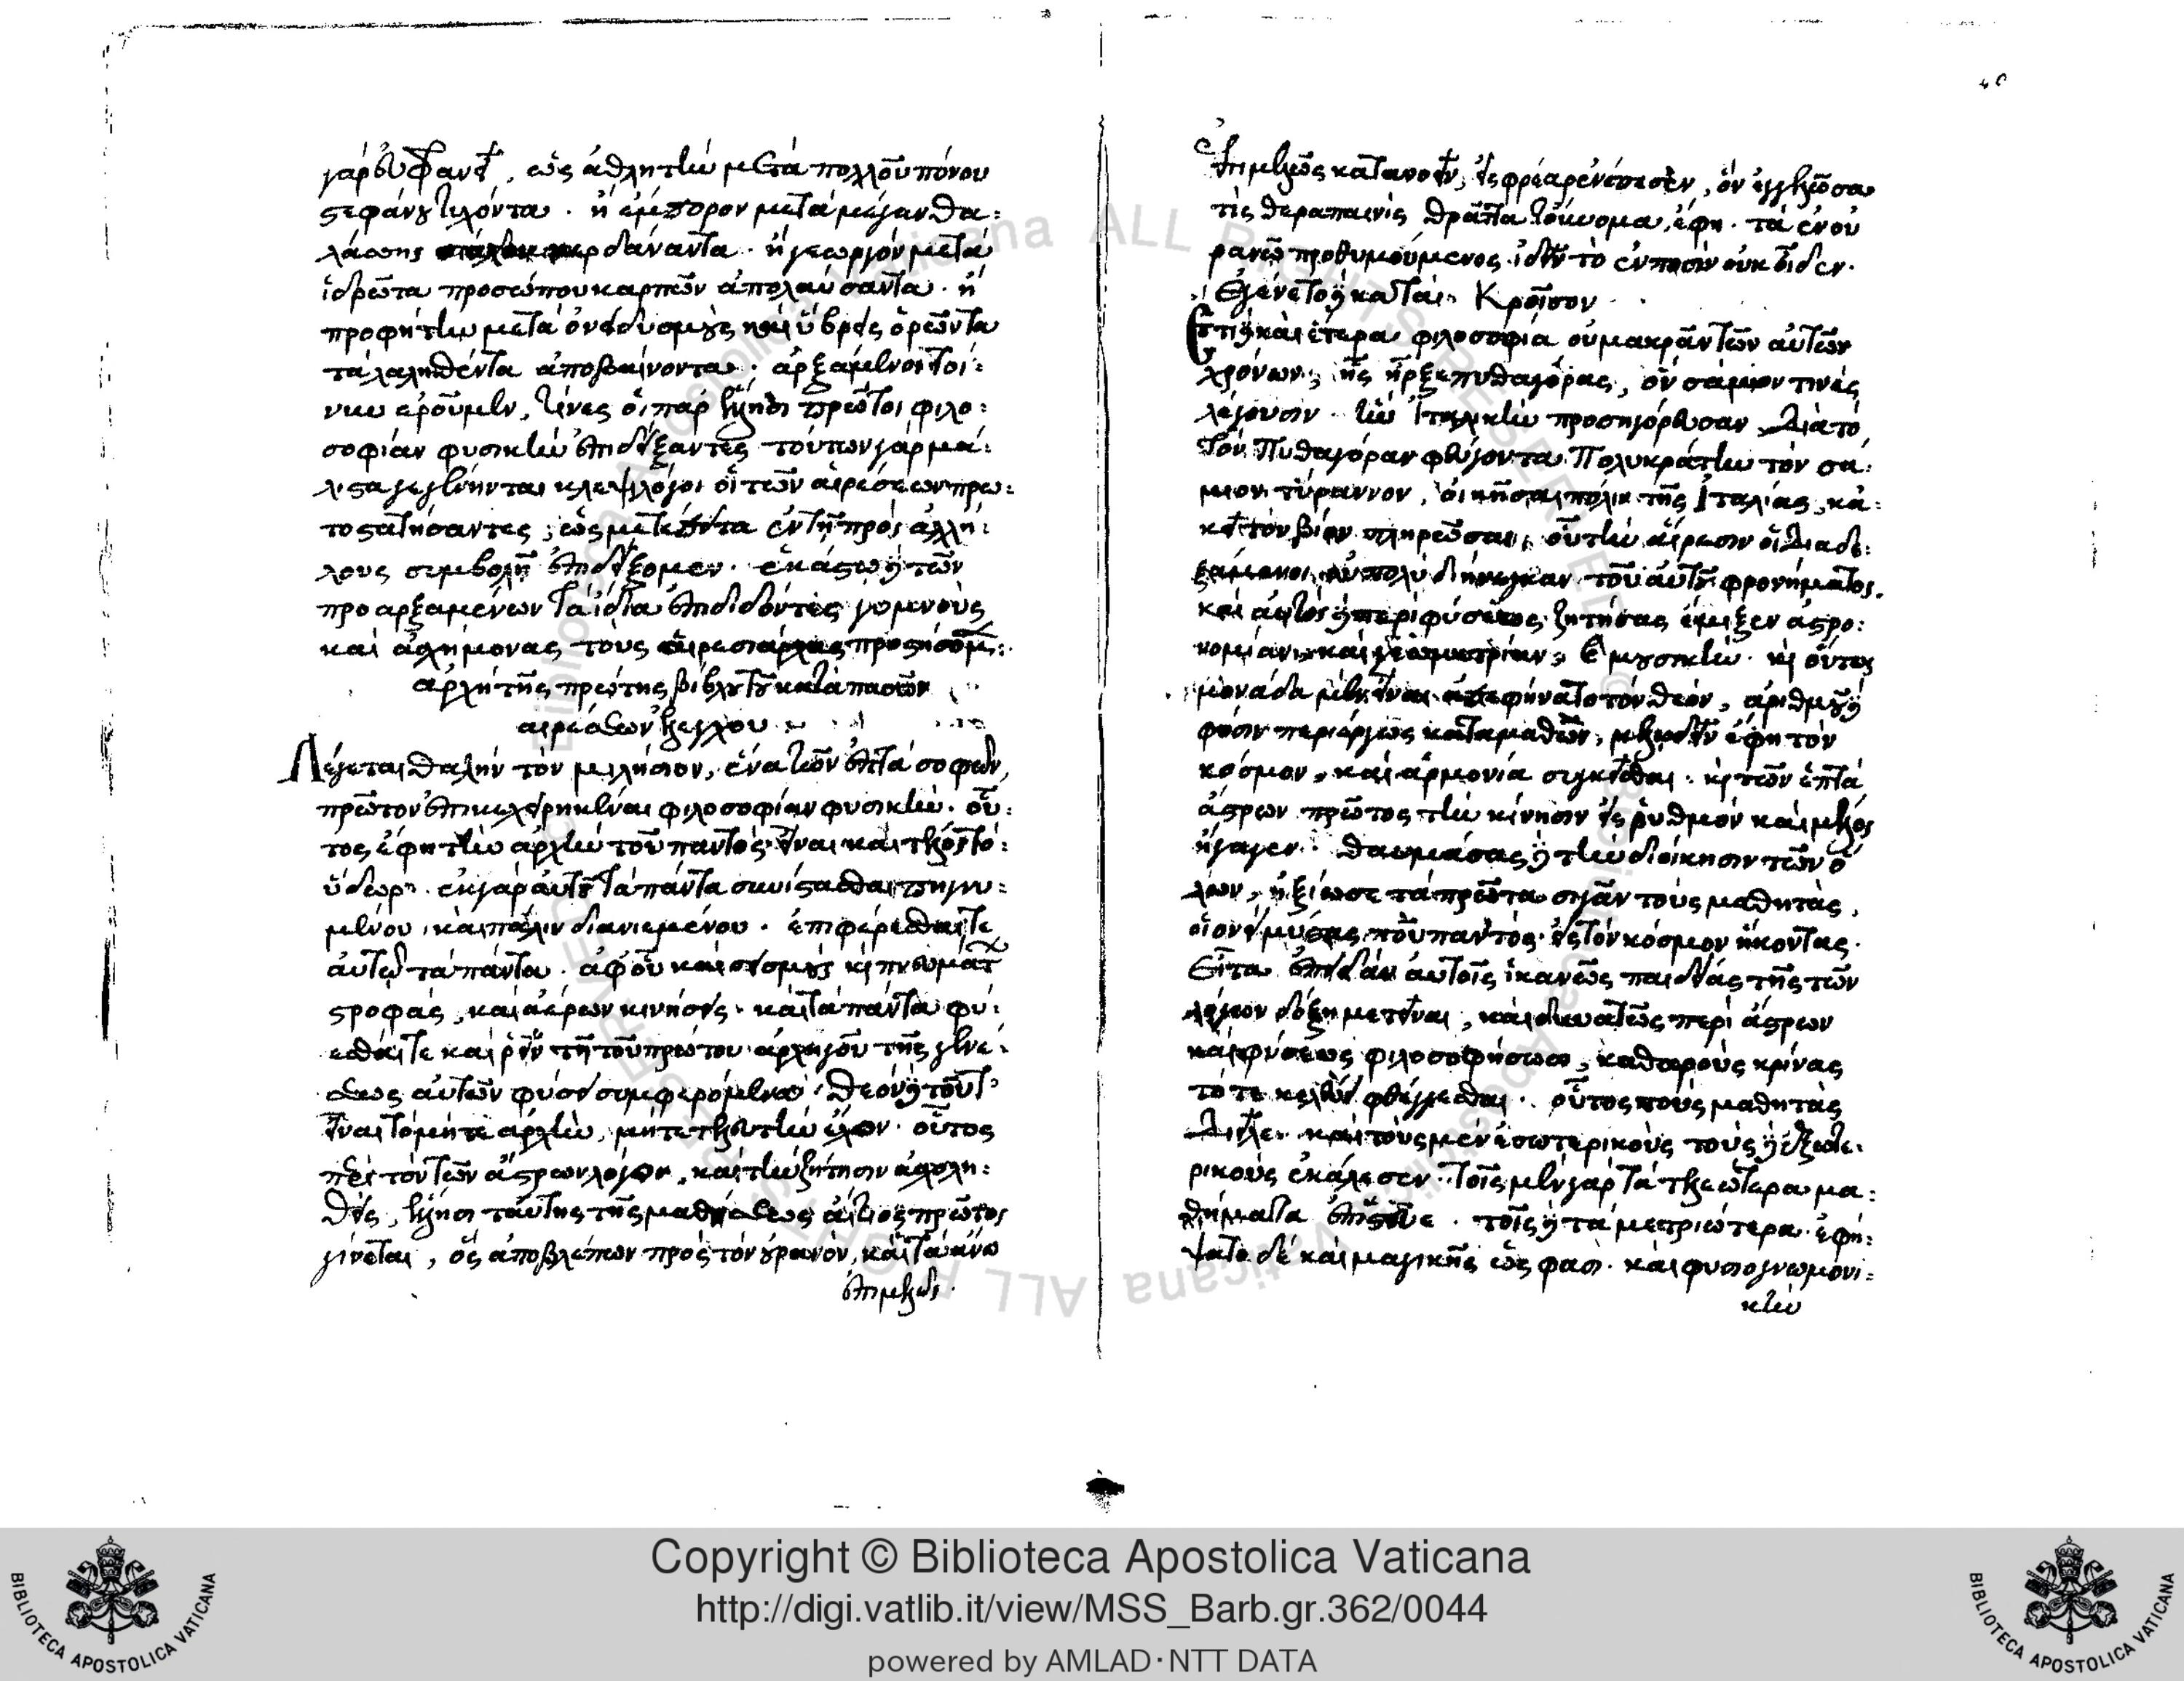 γὰρ εὐφρανεῖ, ὡς ἀθλητὴν μετὰ πολλοῦ πόνου
στεφάνου τυχόντα. ἢ ἔμπορον μετὰ μέγαν θα:
λάσσης κερδάναντα. ἢ γεωργὸν μετὰ
ἱδρῶτα προσώπου καρπῶν ἀπολαύσαντα. ἢ
προφήτην μετὰ ὀνειδισμοὺς καὶ ὕβρεις ὁρῶντα
τὰ λαληθέντα ἀποβαίνοντα. ἀρξάμενοι τοί:
νυν ἐροῦμεν, τίνες οἱ παρ' ἕλλησι πρῶτοι φιλο:
σοφίαν φυσικὴν ἐπιδείξαντες τούτων γὰρ μά:
λιστα γεγένηνται κλεψιλόγοι οἱ τῶν αἱρέσεων πρω:
τοστατήσαντες, ὡς μετέπειτα ἐν τῇ πρὸς ἀλλή:
λους συμβολῇ ἐπιδείξομεν. ἑκάστῳ δὲ τῶν
προαρξαμένων τὰ ἴδια ἀποδιδόντες γυμνοὺς
καὶ ἀσχήμονας τοὺς αἱρεσιάρχας προστήσομεν:
ἀρχὴ τῆς πρώτης βίβλου τοῦ κατὰ πασῶν
αἱρέσεων ἐλέγχου
Λέγεται θαλῆν τὸν μιλήσιον, ἕνα τῶν ἑπτὰ σοφῶν,
πρῶτον ἐπικεχειρηκέναι φιλοσοφίαν φυσικήν. οὗ:
τος ἔφη τὴν ἀρχὴν τοῦ παντὸς εἶναι καὶ τέλος τὸ:
ὕδωρ. ἐκ γὰρ αὐτοῦ τὰ πάντα συνίστασθαι πηγνυ:
μένου καὶ πάλιν διανιεμένου. ἐπιφέρεσθαί τε
αὐτῷ τὰ πάντα. ἀφ' οὗ καὶ σεισμοὺς καὶ πνευμάτων
στροφὰς, καὶ ἀέρων κινήσεις. καὶ τὰ πάντα φύ:
εσθαί τε καὶ ῥεῖν τῇ τοῦ πρώτου ἀρχηγοῦ τῆς γενέ:
σεως αὐτῶν φύσει συμφερόμενα. θεὸν δὲ τοῦτ'
εἶναι τὸ μήτε ἀρχὴν, μήτε τελευτὴν ἔχον. οὗτος
περὶ τὸν τῶν ἄστρων λόγον, καὶ τὴν ζήτησιν ἀσχολη:
θεὶς, ἕλλησι ταύτης τῆς μαθήσεως αἴτιος πρῶτος
γίνεται, ὃς ἀποβλέπων πρὸς τὸν οὐρανὸν, καὶ τὰ ἄνω
ἐπιμελῶς
ἐπιμελῶς κατανοεῖν, εἰς φρέαρ ἐνέπεσεν, ὃν ἐγγελῶσα
τὶς θεραπαινὶς θρᾷττα τοὔνομα, ἔφη. τὰ ἐν οὐ
ρανῷ προθυμούμενος ἰδεῖν τὸ ἐν ποσὶν οὐκ εἶδεν.
ἐγένετο δὲ κατὰ Κροῖσον
Ἔστι δὲ καὶ ἑτέρα φιλοσοφία οὐ μακρὰν τῶν αὐτῶν
χρόνων, ἧς ἦρξε πυθαγόρας, ὃν σάμιον τινὲς
λέγουσιν. ἣν Ἰταλικὴν προσηγόρευσαν διὰ τὸ
τὸν Πυθαγόραν φεύγοντα Πολυκράτην τὸν σά:
μιον τύραννον, οἰκῆσαι πόλιν τῆς Ἰταλίας, κἀ:
κεῖ τὸν βίον πληρῶσαι, οὗ τὴν αἵρεσιν οἱ διαδε:
ξάμενοι οὐ πολὺ διήνεγκαν τοῦ αὐτοῦ φρονήματος.
καὶ αὐτὸς δὲ περὶ φύσεως ζητήσας ἔμιξεν ἀστρο:
νομίαν καὶ γεωμετρίαν, καὶ μουσικήν. καὶ οὕτως
μονάδα μὲν εἶναι ἀπεφήνατο τὸν θεόν, ἀριθμοῦ δὲ
φύσιν περιέργως καταμαθὼν, μελῳδεῖν ἔφη τὸν
κόσμον, καὶ ἁρμονίᾳ συγκεῖσθαι. καὶ τῶν ἑπτὰ
ἄστρων πρῶτος τὴν κίνησιν εἰς ῥυθμὸν καὶ μέλος
ἤγαγεν. θαυμάσας δὲ τὴν διοίκησιν τῶν ὅ
λων, ἠξίωσε τὰ πρῶτα σιγᾶν τοὺς μαθητὰς,
οἱονεὶ μύστας τοῦ παντὸς εἰς τὸν κόσμον ἥκοντας.
Εἶτα ἐπειδὰν αὐτοῖς ἱκανῶς παιδείας τῆς τῶν
λόγων δόξῃ μετεῖναι, καὶ δυνατῶς περὶ ἄστρων
καὶ φύσεως φιλοσοφήσωσι, καθαροὺς κρίνας
τότε κελεύει φθέγγεσθαι. οὗτος τοὺς μαθητὰς
διεῖλε. καὶ τοὺς μὲν ἐσωτερικοὺς τοὺς δὲ ἐξωτε.
ρικοὺς ἐκάλεσεν. τοῖς μὲν γὰρ τὰ τελεώτερα μα:
θήματα ἐπίστευε. τοῖς δὲ τὰ μετριώτερα. ἐφή:
ψατο δὲ καὶ μαγικῆς ὥς φασι. καὶ φυσιογνωμονι:
κὴν
Copyright © Biblioteca Apostolica Vaticana
http://digi.vatlib.it/view/MSS_Barb.gr.362/0044
powered by AMLAD·NTT DATA
BIBLIOTECA APOSTOLICA VATICANA
BIBLIOTECA APOSTOLICA VATICANA